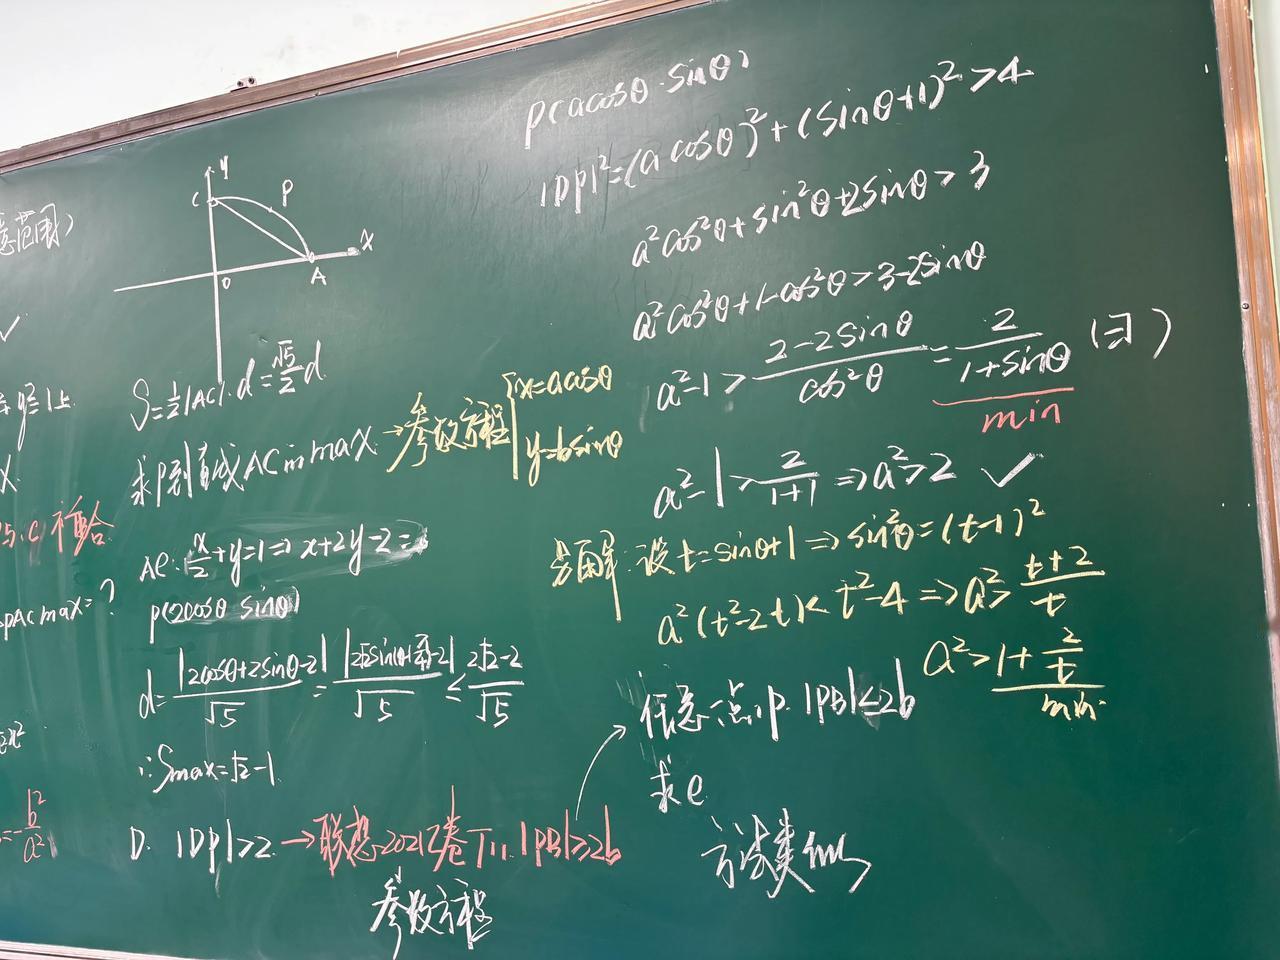 范围)
✓
y²=1上
5.C 补合
PAC max=?
=-b²/a²
y
C
P
x
O
A
S=½|AC|·d=√5/2 d
求P到直线AC的max→参数方程{x=acosθ
y=bsinθ
AC:x/2+y=1⇒x+2y-2=0
P(2cosθ sinθ)
d=|2cosθ+2sinθ-2|/√5=|2√2sin(θ+π/4)-2|/√5≤(2√2-2)/√5
∴Smax=√2-1
D. |DP|>2→联想2021乙卷T11. |PB|>2b
参数方程
P(acosθ·sinθ)
|DP|²=(acosθ)²+(sinθ+1)²>4
a²cos²θ+sin²θ+2sinθ>3
a²cos²θ+1-cos²θ>3-2sinθ
a²-1>(2-2sinθ)/cos²θ=2/(1+sinθ) (∃)
min
a²-1>2/(1+1)⇒a²>2 ✓
另解:设t=sinθ+1⇒sin²θ=(t-1)²
a²(t²-2t)<t²-4⇒a²>(t+2)/t
a²>1+2/t
min
任意一点P.|PB|≤2b
求e
方法类似